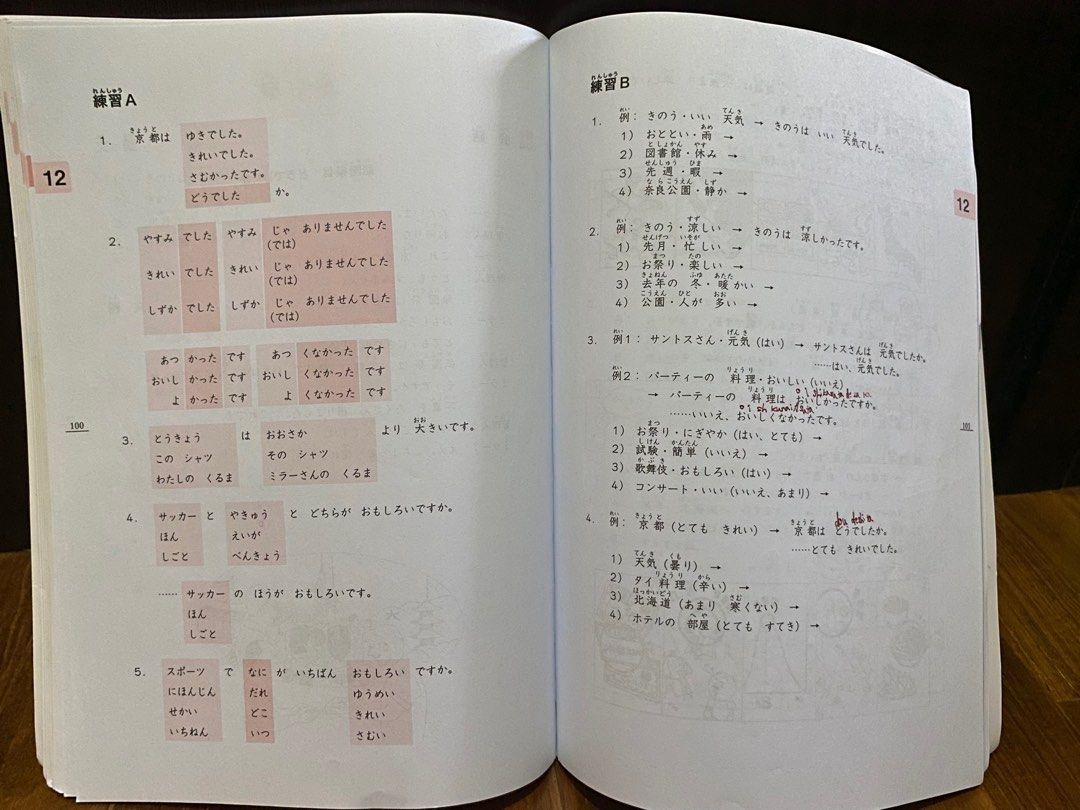 練習A
1. 京都は ゆきでした。
きれいでした。
さむかったです。
どうでした か。
12
2. やすみ でした やすみ じゃ ありませんでした
(では)
きれい でした きれい じゃ ありませんでした
(では)
しずか でした しずか じゃ ありませんでした
(では)
あつ かった です あつ くなかった です
おいし かった です おいし くなかった です
よ かった です よ くなかった です
100
3. とうきょう は おおさか より 大きいです。
この シャツ その シャツ
わたしの くるま ミラーさんの くるま
4. サッカー と やきゅう と どちらが おもしろいですか。
ほん えいが
しごと べんきょう
…… サッカー の ほうが おもしろいです。
ほん
しごと
5. スポーツ で なに が いちばん おもしろい ですか。
にほんじん だれ ゆうめい
せかい どこ きれい
いちねん いつ さむい
練習B
1. 例：きのう・いい 天気 → きのうは いい 天気でした。
1) おととい・雨 →
2) 図書館・休み →
3) 先週・暇 →
4) 奈良公園・静か →
12
2. 例：きのう・涼しい → きのうは 涼しかったです。
1) 先月・忙しい →
2) お祭り・楽しい →
3) 去年の 冬・暖かい →
4) 公園・人が 多い →
3. 例1：サントスさん・元気（はい） → サントスさんは 元気でしたか。
……はい、元気でした。
例2：パーティーの 料理・おいしい（いいえ）
→ パーティーの 料理は おいしかったですか。
……いいえ、おいしくなかったです。
1) お祭り・にぎやか（はい、とても） →
2) 試験・簡単（いいえ） →
3) 歌舞伎・おもしろい（はい） →
4) コンサート・いい（いいえ、あまり） →
101
4. 例：京都（とても きれい） → 京都は どうでしたか。
……とても きれいでした。
1) 天気（曇り） →
2) タイ料理（辛い） →
3) 北海道（あまり 寒くない） →
4) ホテルの 部屋（とても すてき） →